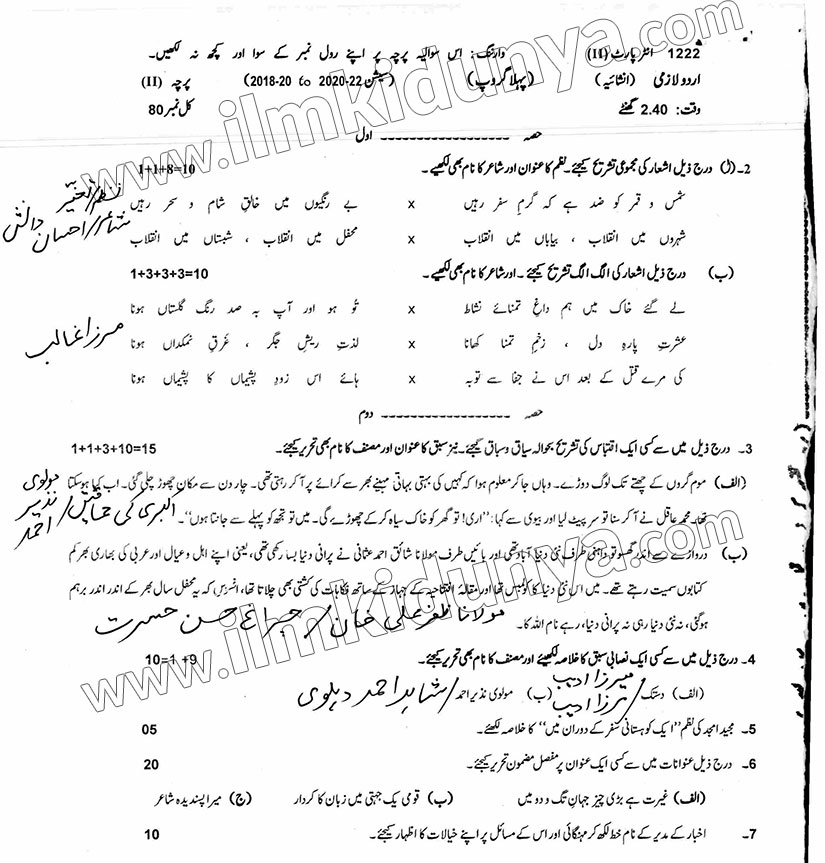 1222 انٹر پارٹ (II) وارننگ: اس سوالیہ پرچہ پر اپنے رول نمبر کے سوا اور کچھ نہ لکھیں۔
اردو لازمی (انشائیہ) (پہلا گروپ) (سیشن 22-2020 to 20-2018) پرچہ (II)
وقت: 2.40 گھنٹے کل نمبر 80
حصہ ------------------ اول
2۔ (ل) درج ذیل اشعار کی مجموعی تشریح کیجئے۔ نظم کا عنوان اور شاعر کا نام بھی لکھیے۔ 1+1+8=10
شمس و قمر کو ضد ہے کہ گرمِ سفر رہیں x بے رنگیوں میں خالقِ شام و سحر رہیں
نظم/تغیّر
شہروں میں انقلاب ، بیاباں میں انقلاب x محفل میں انقلاب ، شبستاں میں انقلاب
شاعر/احسان دانش
(ب) درج ذیل اشعار کی الگ الگ تشریح کیجئے۔ اور شاعر کا نام بھی لکھیے۔ 1+3+3+3=10
لے گئے خاک میں ہم داغِ تمنائے نشاط x تُو ہو اور آپ بہ صد رنگ گلستاں ہونا
عشرتِ پارہ دل ، زخمِ تمنا کھانا x لذتِ ریشِ جگر ، غرقِ نمکداں ہونا
مرزا غالب
کی مرے قتل کے بعد اس نے جفا سے توبہ x ہائے اس زود پشیماں کا پشیماں ہونا
حصہ ------------------ دوم
3۔ درج ذیل میں سے کسی ایک اقتباس کی تشریح بحوالہ سیاق و سباق کیجئے۔ نیز سبق کا عنوان اور مصنف کا نام بھی تحریر کیجئے۔ 1+1+3+10=15
(الف) موم گروں کے چھتے تک لوگ دوڑے۔ وہاں جا کر معلوم ہوا کہ کہیں کی بہتی بہاتی مہینے بھر سے کرائے پر آ کر رہتی تھی۔ چار دن سے مکان چھوڑ چلی گئی۔ اب کیا ہو سکتا
تھا۔ محمد عاقل نے آ کر سنا تو سر پیٹ لیا اور بیوی سے کہا: "اری! تو گھر کو خاک سیاہ کر کے چھوڑے گی۔ میں تو تجھ کو پہلے سے جانتا ہوں"۔
اکبری کی حماقتیں/مولوی نذیر احمد
(ب) دروازے سے اندر گھسو تو داہنی طرف نئی دنیا آباد تھی اور بائیں طرف مولانا شائق احمد عثمانی نے پرانی دنیا بسا رکھی تھی، یعنی اپنے اہل و عیال اور عربی کی بھاری بھر کم
کتابوں سمیت رہتے تھے۔ میں اس نئی دنیا کا کولمبس تھا اور مقالہ افتتاحیہ کے جہاز کے ساتھ فکاہات کی کشتی بھی چلاتا تھا، افسوس کہ یہ محفل سال بھر کے اندر اندر برہم
ہو گئی، نہ نئی دنیا رہی نہ پرانی دنیا، رہے نام اللہ کا۔
مولانا ظفر علی خان/چراغ حسن حسرت
4۔ درج ذیل میں سے کسی ایک نصابی سبق کا خلاصہ لکھیئے اور مصنف کا نام بھی تحریر کیجئے۔ 10=1 +9
(الف) دستک/میرزا ادیب مرزا ادیب (ب) مولوی نذیر احمد/شاہد احمد دہلوی
5۔ مجید امجد کی نظم "ایک کوہستانی سفر کے دوران میں" کا خلاصہ لکھئے۔ 05
6۔ درج ذیل عنوانات میں سے کسی ایک عنوان پر مفصل مضمون تحریر کیجئے۔ 20
(الف) غیرت ہے بڑی چیز جہانِ تگ و دو میں (ب) قومی یک جہتی میں زبان کا کردار (ج) میرا پسندیدہ شاعر
7۔ اخبار کے مدیر کے نام خط لکھ کر مہنگائی اور اس کے مسائل پر اپنے خیالات کا اظہار کیجئے۔ 10
www.ilmkidunya.com
www.ilmkidunya.com
www.ilmkidunya.com